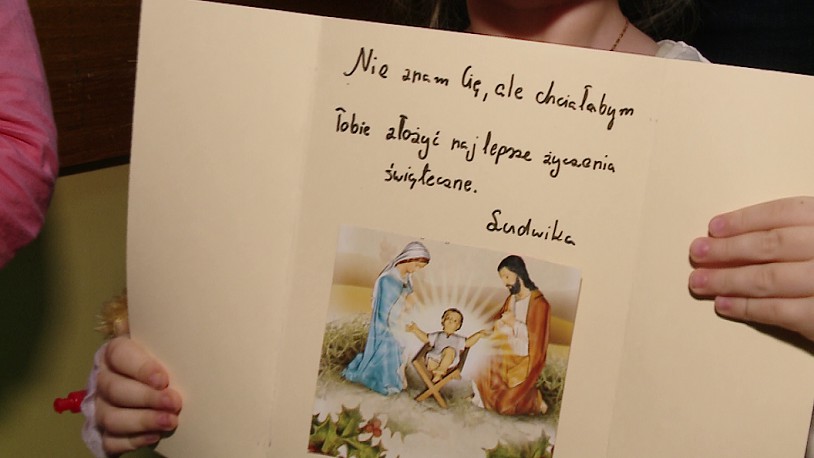 Nie znam Cię, ale chciałabym
Tobie złożyć najlepsze życzenia
świąteczne.
Ludwika